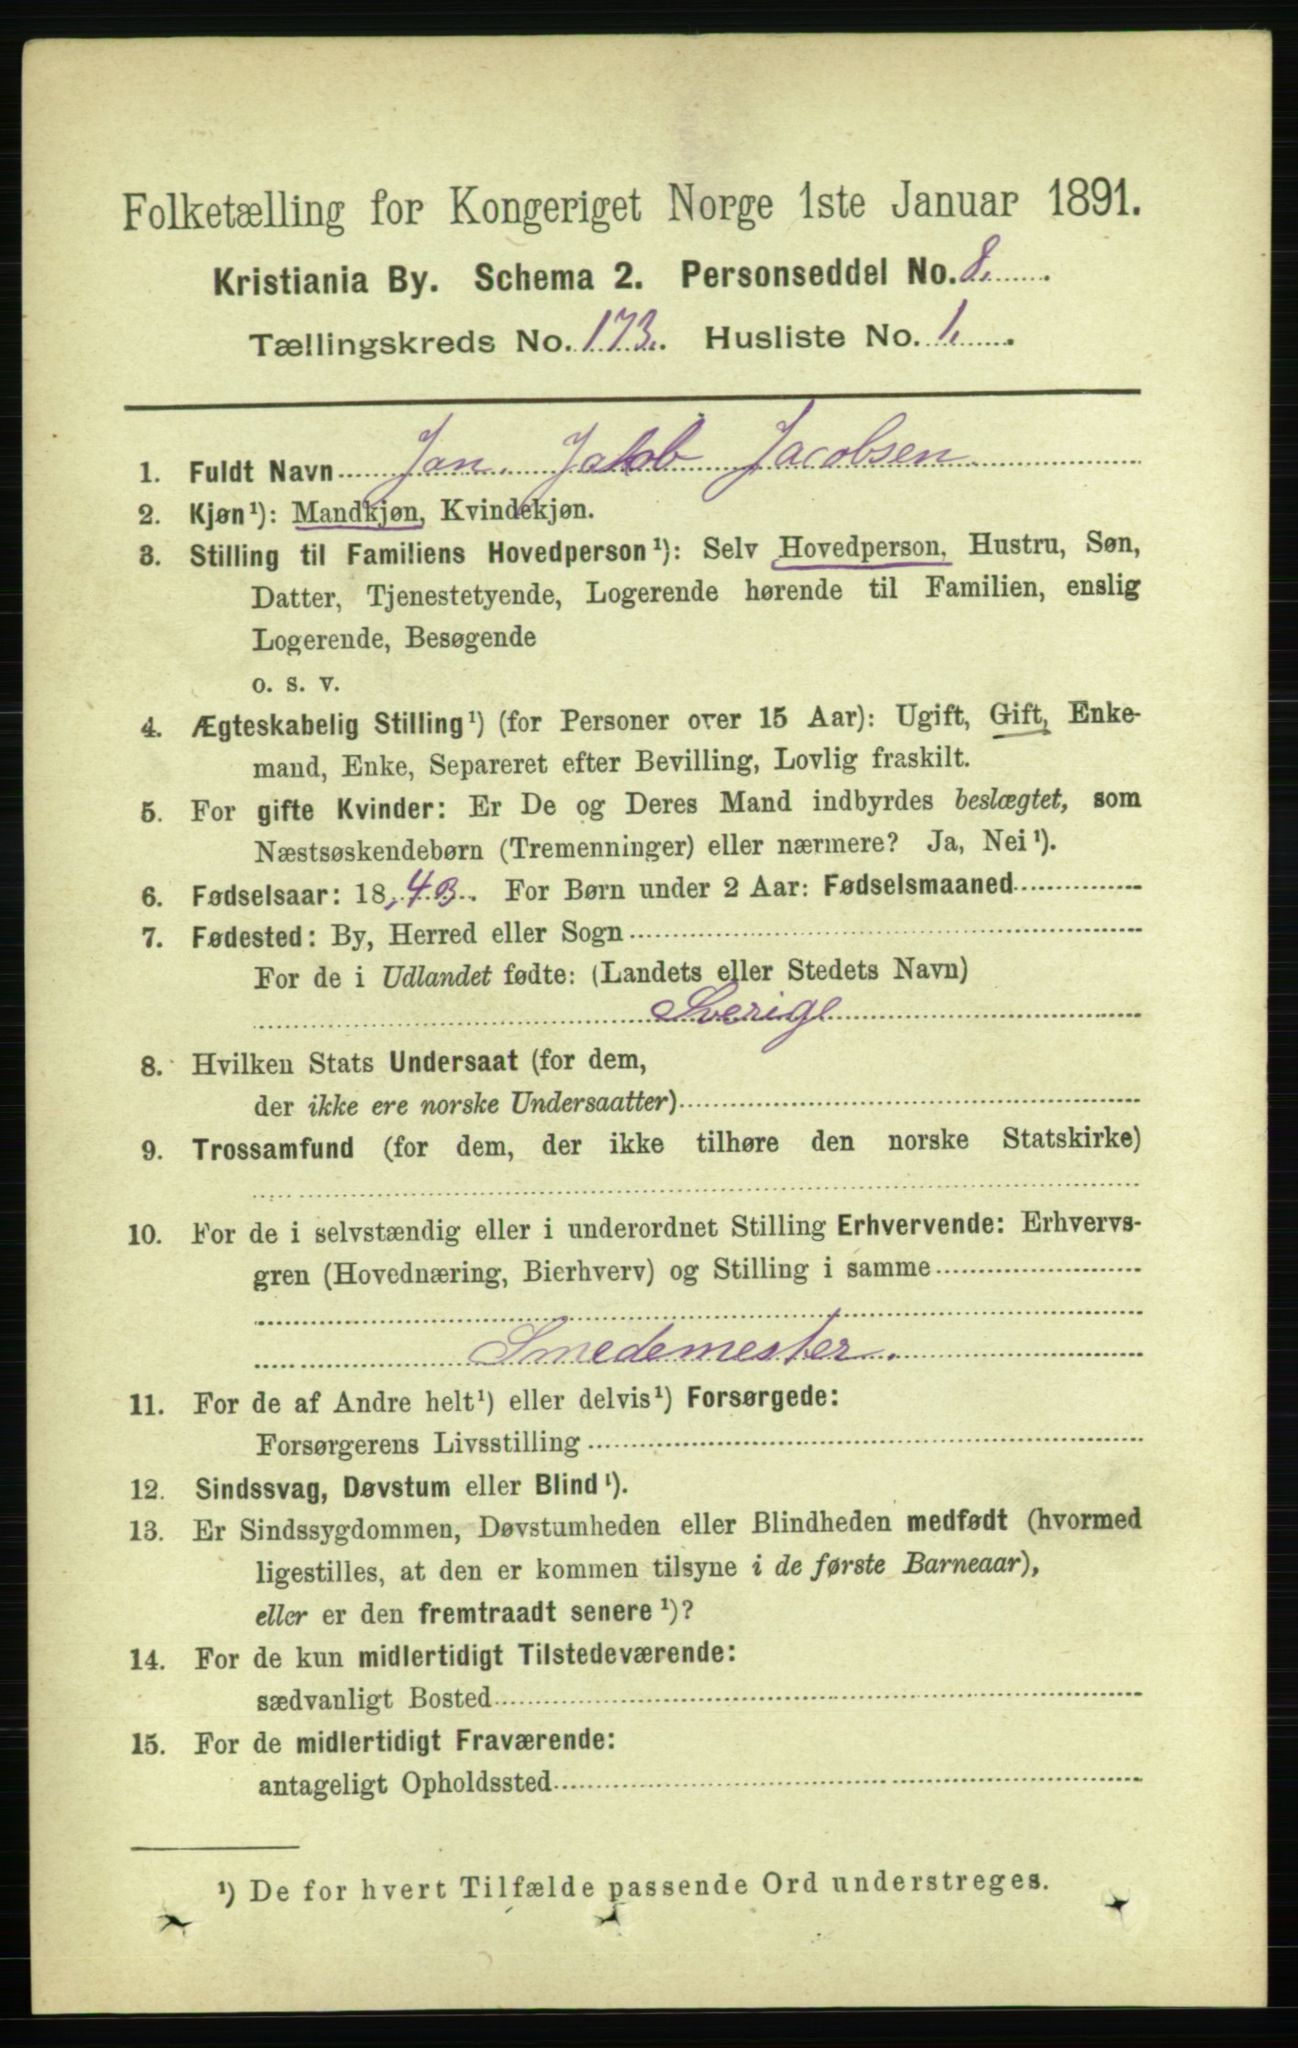 Folketælling for Kongeriget Norge 1ste Januar 1891.
Kristiania By. Schema 2. Personseddel No. 8.
Tællingskreds No. 173. Husliste No. 1.
1. Fuldt Navn Jan. Jakob Jacobsen
2. Kjøn¹): Mandkjøn, Kvindekjøn.
3. Stilling til Familiens Hovedperson¹): Selv Hovedperson, Hustru, Søn,
Datter, Tjenestetyende, Logerende hørende til Familien, enslig
Logerende, Besøgende
o. s. v.
4. Ægteskabelig Stilling¹) (for Personer over 15 Aar): Ugift, Gift, Enke-
mand, Enke, Separeret efter Bevilling, Lovlig fraskilt.
5. For gifte Kvinder: Er De og Deres Mand indbyrdes beslægtet, som
Næstsøskendebørn (Tremenninger) eller nærmere? Ja, Nei¹).
6. Fødselsaar: 1843. For Børn under 2 Aar: Fødselsmaaned
7. Fødested: By, Herred eller Sogn
For de i Udlandet fødte: (Landets eller Stedets Navn)
Sverige
8. Hvilken Stats Undersaat (for dem,
der ikke ere norske Undersaatter)
9. Trossamfund (for dem, der ikke tilhøre den norske Statskirke)
10. For de i selvstændig eller i underordnet Stilling Erhvervende: Erhvervs-
gren (Hovednæring, Bierhverv) og Stilling i samme
Smedemester.
11. For de af Andre helt¹) eller delvis¹) Forsørgede:
Forsørgerens Livsstilling
12. Sindssvag, Døvstum eller Blind¹).
13. Er Sindssygdommen, Døvstumheden eller Blindheden medfødt (hvormed
ligestilles, at den er kommen tilsyne i de første Barneaar),
eller er den fremtraadt senere¹)?
14. For de kun midlertidigt Tilstedeværende:
sædvanligt Bosted
15. For de midlertidigt Fraværende:
antageligt Opholdssted
¹) De for hvert Tilfælde passende Ord understreges.